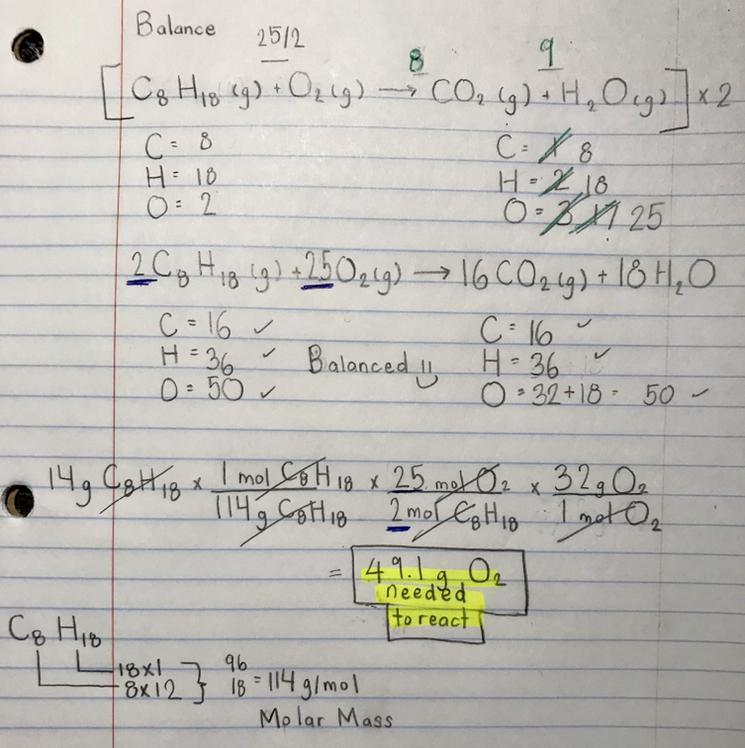 Balance
25/2 8 9
[C8H18(g) + O2(g) → CO2(g) + H2O(g)] × 2
C = 8 C = 1 8
H = 18 H = 2 18
O = 2 O = 3 17 25
2C8H18(g) + 25O2(g) → 16CO2(g) + 18H2O
C = 16 ✓ C = 16 ✓
H = 36 ✓ Balanced H = 36 ✓
O = 50 ✓ O = 32+18 = 50 ✓
14g C8H18 × 1 mol C8H18 / 114g C8H18 × 25 mol O2 / 2 mol C8H18 × 32g O2 / 1 mol O2
= 49.1 g O2
needed
to react
C8H18
18×1 96
8×12 18 = 114 g/mol
Molar Mass